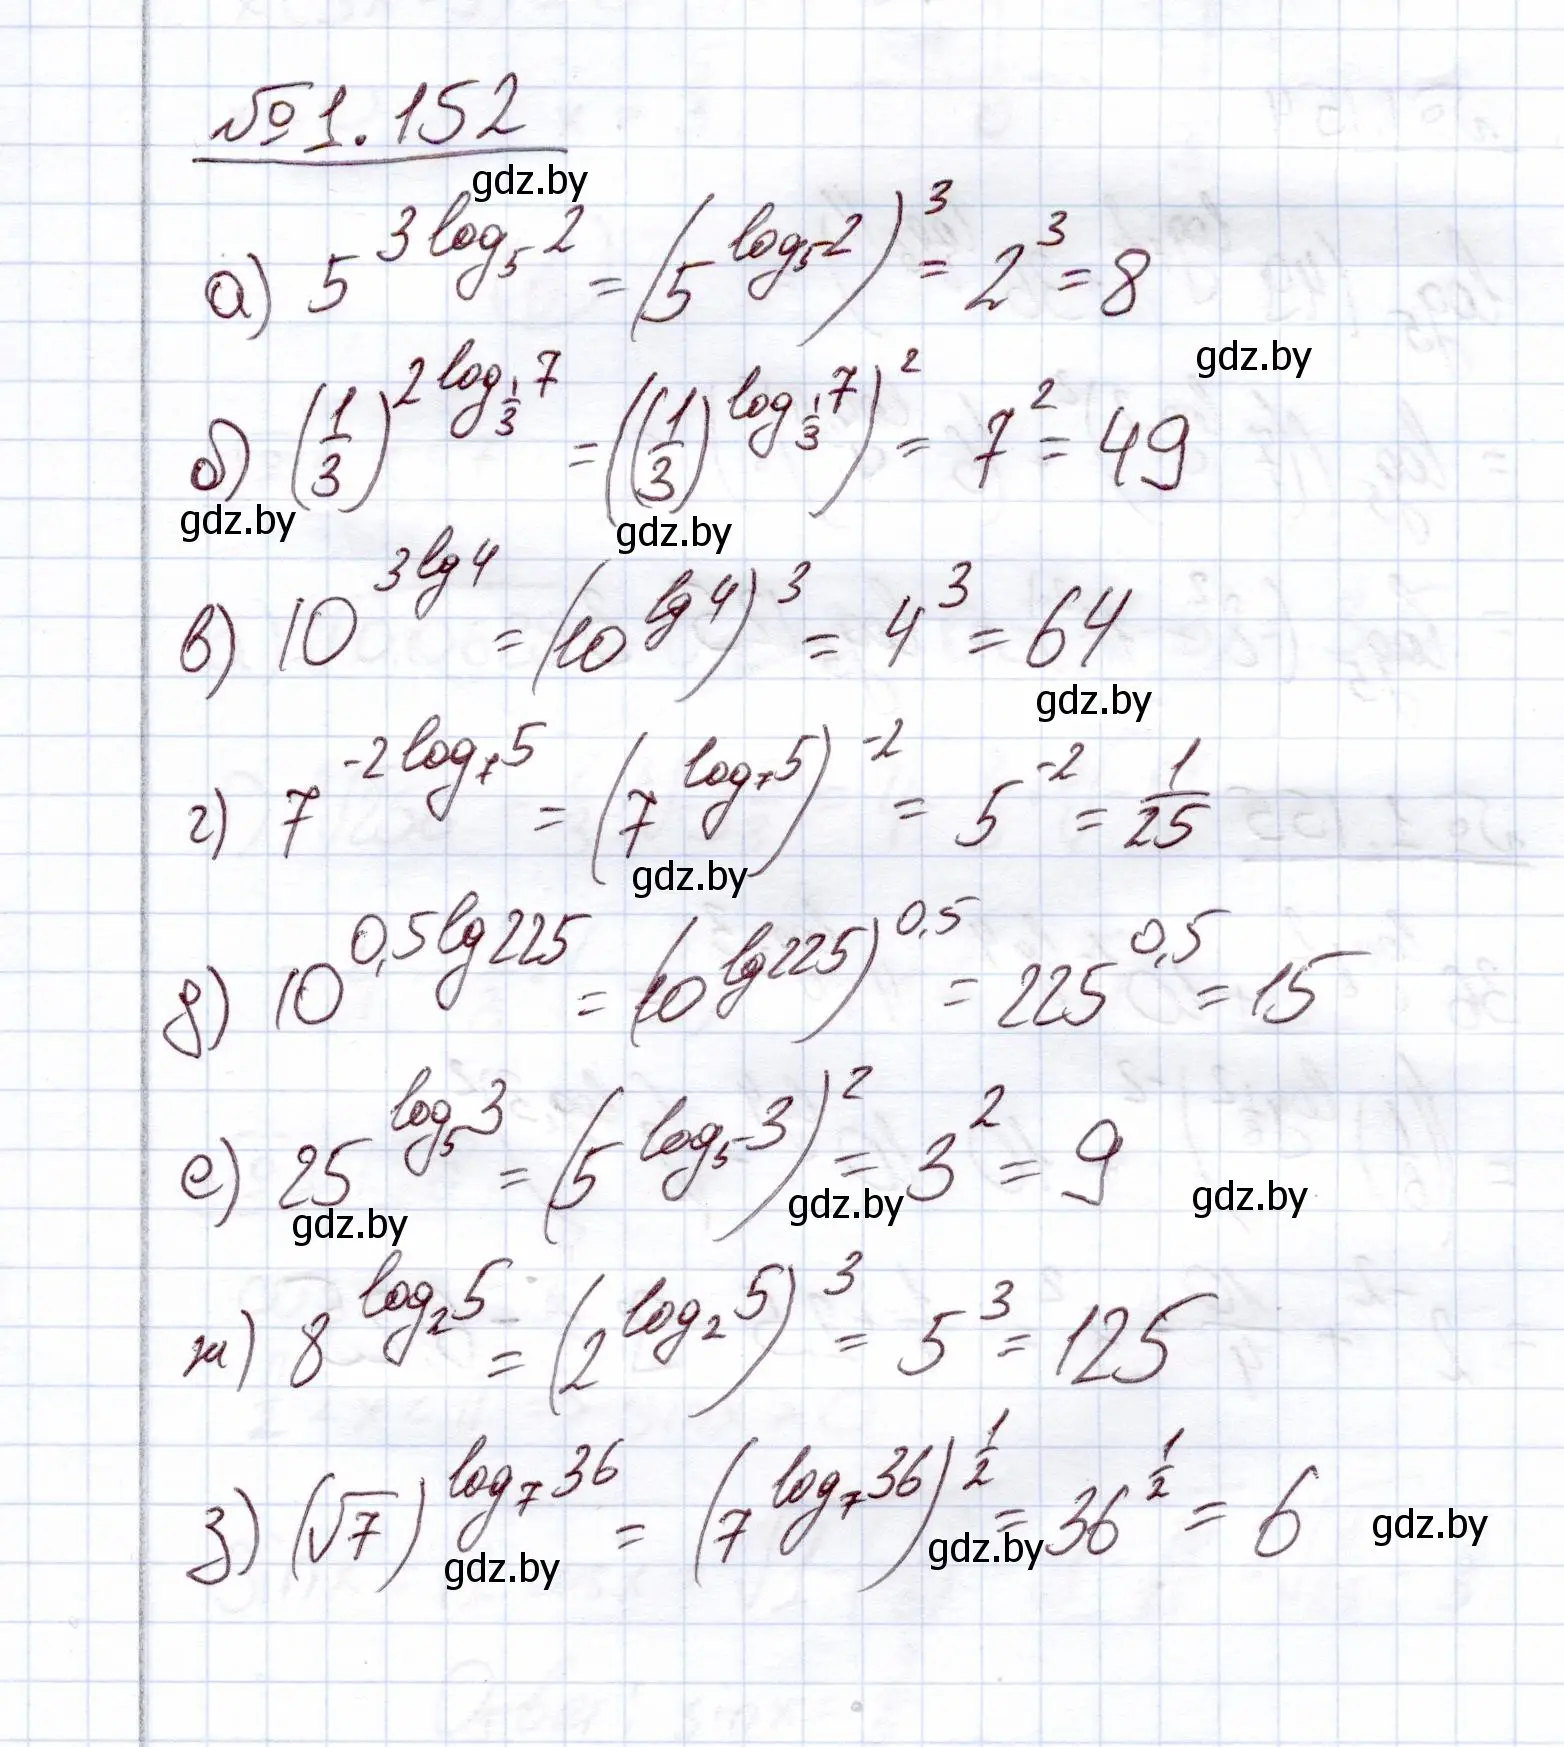 №1.152
gdz.by
а) 5^{3 log_5 2} = (5^{log_5 2})^3 = 2^3 = 8
gdz.by
б) (1/3)^{2 log_{1/3} 7} = ((1/3)^{log_{1/3} 7})^2 = 7^2 = 49
gdz.by gdz.by
в) 10^{3 lg 4} = (10^{lg 4})^3 = 4^3 = 64
gdz.by
г) 7^{-2 log_7 5} = (7^{log_7 5})^{-2} = 5^{-2} = 1/25
gdz.by
д) 10^{0,5 lg 225} = (10^{lg 225})^{0,5} = 225^{0,5} = 15
е) 25^{log_5 3} = (5^{log_5 3})^2 = 3^2 = 9
gdz.by gdz.by gdz.by
ж) 8^{log_2 5} = (2^{log_2 5})^3 = 5^3 = 125
з) (√7)^{log_7 36} = (7^{log_7 36})^{1/2} = 36^{1/2} = 6 gdz.by
gdz.by gdz.by